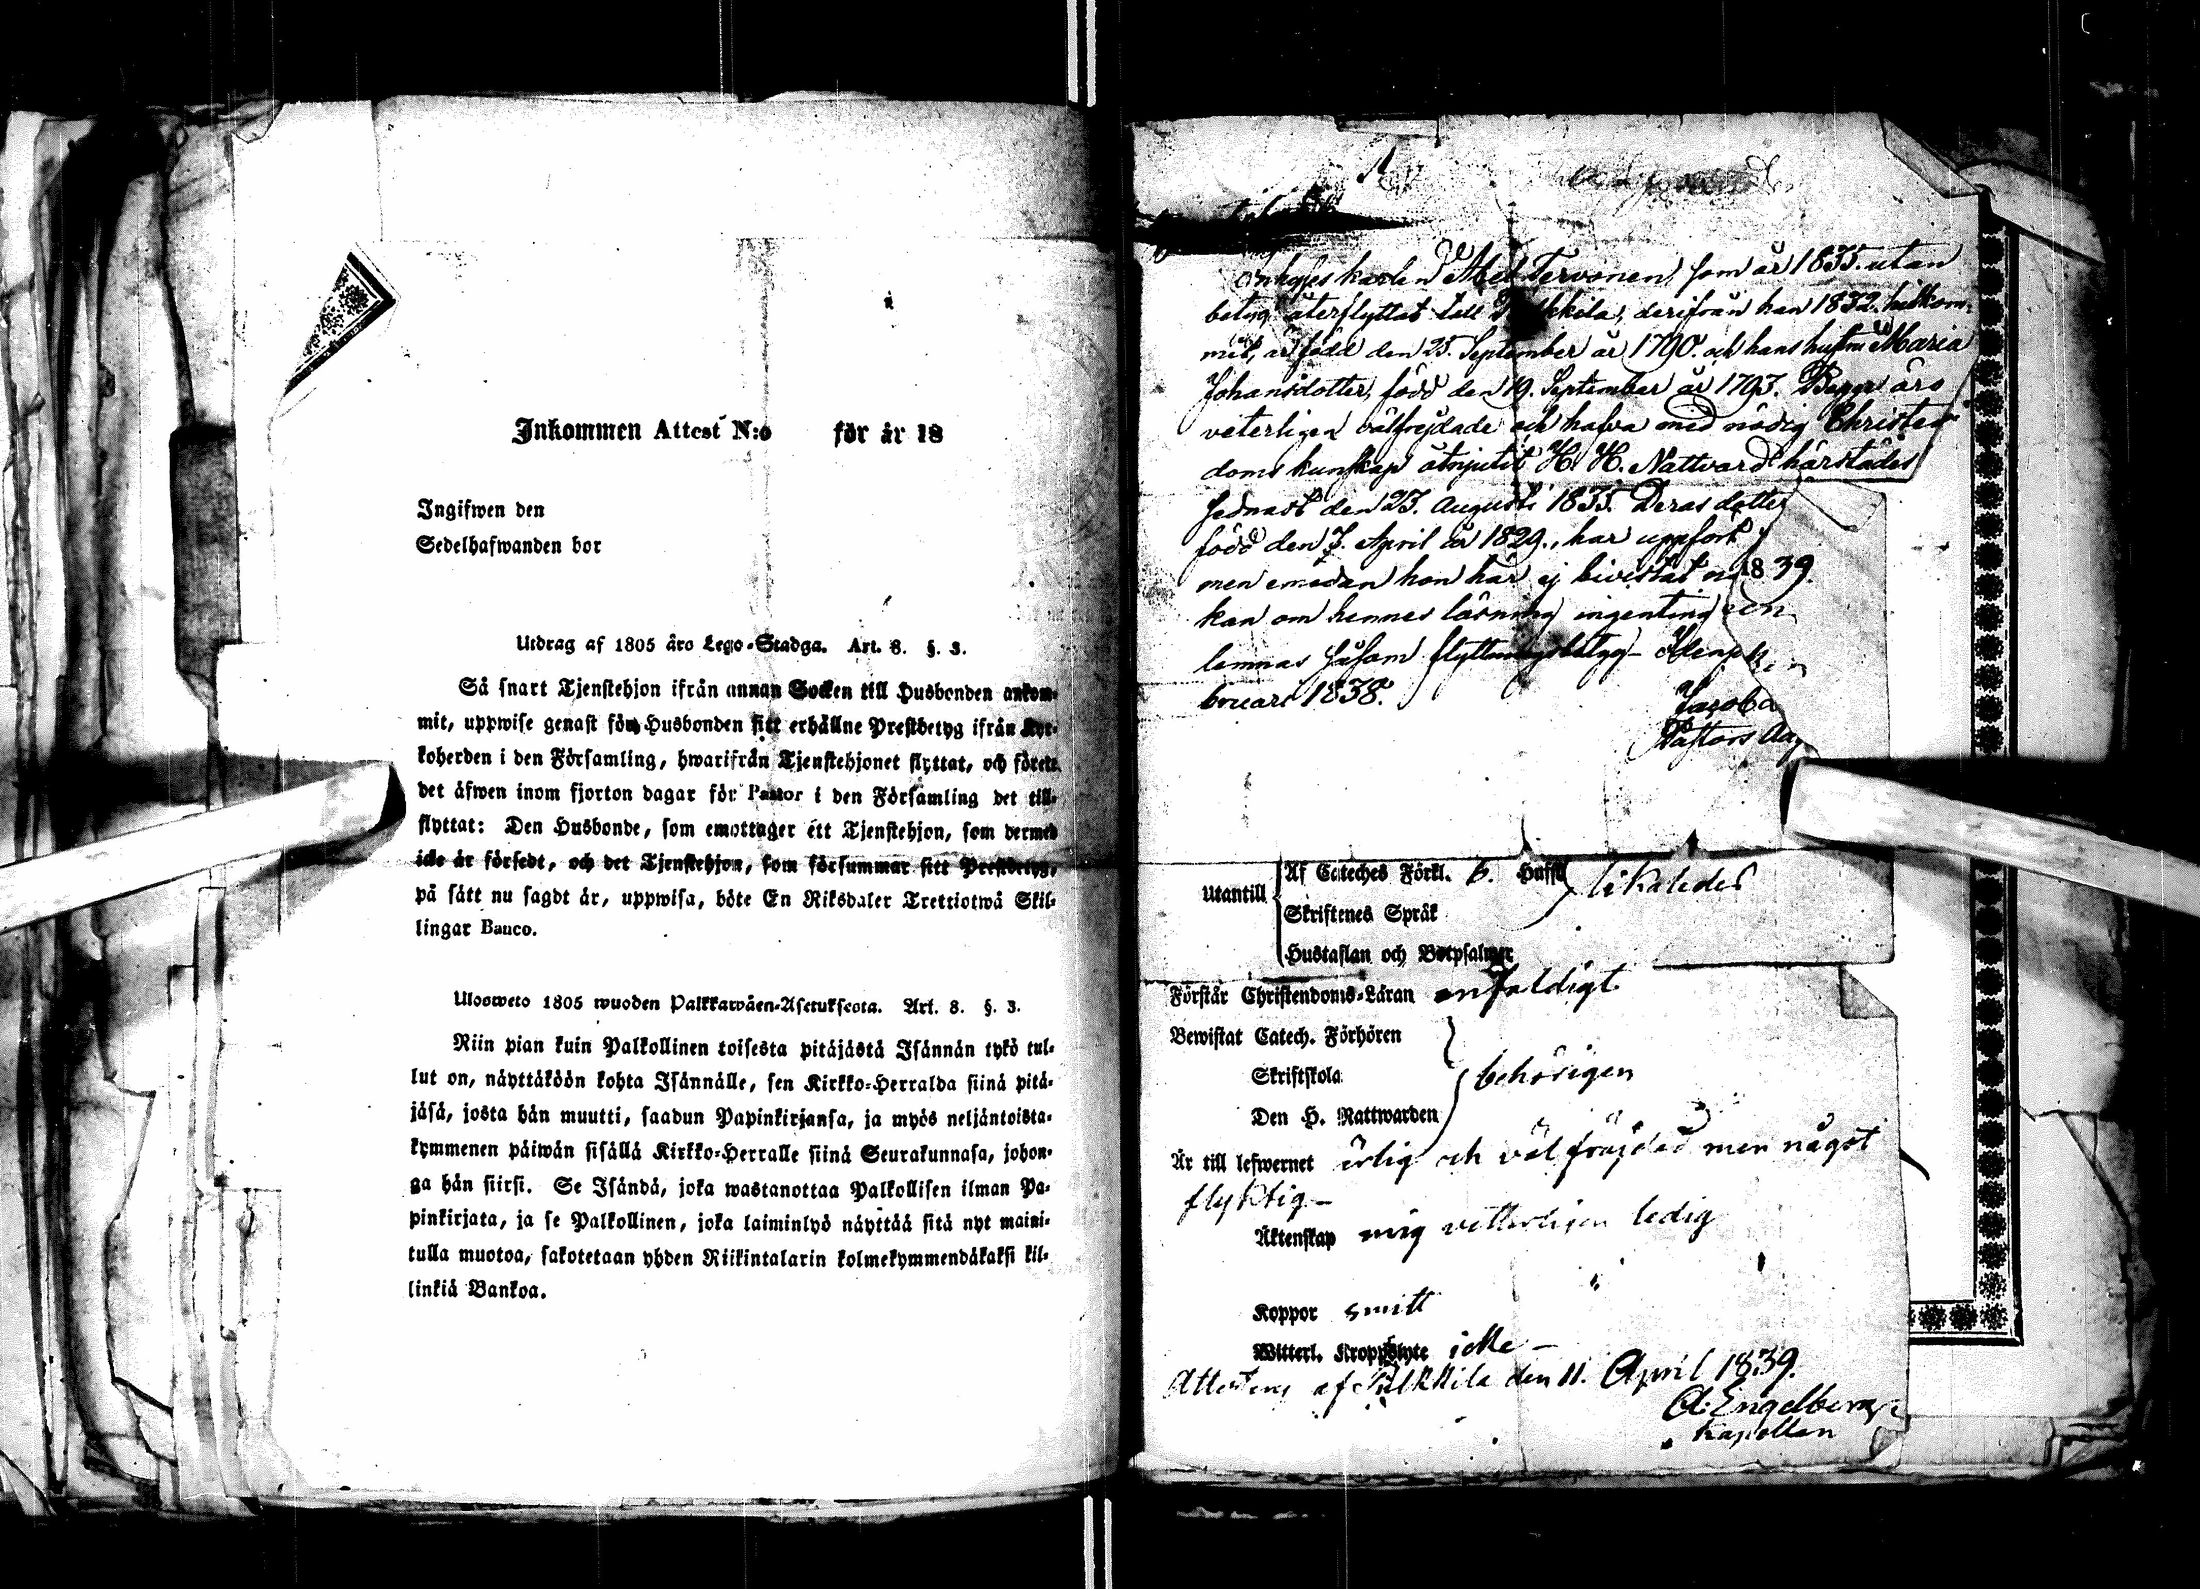 Inkommen Attest N:o för år 18
Ingifwen den
Sedelhafwanden bor
Utdrag af 1805 års Lego-Stadga. Art. 8. §. 3.
Så snart Tjenstehjon ifrån annan Socken till Husbonden ankom-
mit, uppwise genast för Husbonden sitt erhållne Prestbetyg ifrån Kyr-
koherden i den Församling, hwarifrån Tjenstehjonet flyttat, och förete
det äfwen inom fjorton dagar för Pastor i den Församling det till-
flyttat: Den Husbonde, som emottager ett Tjenstehjon, som dermed
icke är försedt, och det Tjenstehjon, som försummar sitt Prestbetyg,
på sätt nu sagdt är, uppwisa, böte En Riksdaler Trettiotwå Skil-
lingar Banco.
Ulosweto 1805 wuoden Palkkawäen-Asetuksesta. Art. 8. §. 3.
Niin pian kuin Palkollinen toisesta pitäjästä Isännän tykö tul-
lut on, näyttäköön kohta Isännälle, sen Kirkko-Herralda siinä pitä-
jäsä, josta hän muutti, saadun Papinkirjansa, ja myös neljäntoista-
kymmenen päiwän sisällä Kirkko-Herralle siinä Seurakunnasa, johon-
ga hän siirsi. Se Isändä, joka wastanottaa Palkollisen ilman Pa-
pinkirjata, ja se Palkollinen, joka laiminlyö näyttää sitä nyt maini-
tulla muotoa, sakotetaan yhden Riikintalarin kolmekymmendäkaksi kil-
linkiä Bankoa.
Abel Tervonen, som år 1835 utan
betyg återflyttat till derifrån han 1832 hitkom-
mit, är född den 25. September år 1790. och hans hustru Maria
Johansdotter, född den 19. September år 1793. Begge äro
veterligen välfrejdade och hafva med nödig Christen
doms kunskap åtnjutit H. H. Nattvard härstädes
sednast den 23. Augusti 1835. Deras dotter
född den 7. April år 1829., har uppfört
men emedan hon har ej bivistat 1839.
kan om hennes läsning ingenting
lemnas såsom flyttningsbetyg
bruari 1838.
Jacob
Pastors
Utantill Af Cateches Förkl. Hufft likaledes
Skriftenes Språk
Hustaflan och Botpsalmer
Förstår Christendoms-Läran enfaldigt
Bewistat Catech. Förhören
Skriftskola behörigen
Den H. Nattwarden
Är till lefwernet ärlig och välfräjdad men något
flyktig –
Äktenskap mig vetterligen ledig
Koppor smitt
Witterl. Kroppslyte icke –
af Pulkkila den 11. April 1839.
A. Engelberg
Kapellan